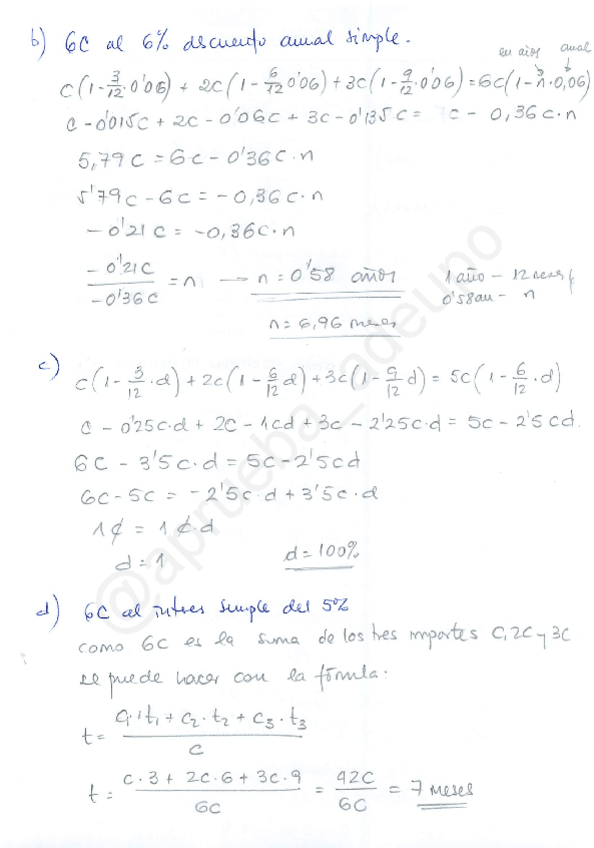 b) 6C al 6% descuento anual simple.
en años anual
C(1-3/12·0'06) + 2C(1-6/12 0'06) + 3C(1-9/12·0'06) = 6C(1-n·0,06)
C - 0'015C + 2C - 0'06C + 3C - 0'135C = C - 0,36C·n
5,79C = 6C - 0'36C·n
5'79C - 6C = -0,36C·n
-0'21C = -0,36C·n
-0'21C/-0'36C = n → n = 0'58 años
1 año - 12 meses
0'58 au - n
n = 6,96 meses
c) C(1-3/12·d) + 2C(1-6/12 d) + 3C(1-9/12 d) = 5C(1-6/12·d)
C - 0'25C·d + 2C - 1Cd + 3C - 2'25C·d = 5C - 2'5Cd.
6C - 3'5C·d = 5C - 2'5Cd
6C - 5C = -2'5C·d + 3'5C·d
1C = 1C·d
d = 1 d = 100%
d) 6C al interes simple del 5%
como 6C es la suma de los tres importes C, 2C y 3C
se puede hacer con la fórmula:
t = C1·t1 + C2·t2 + C3·t3 / C
t = C·3 + 2C·6 + 3C·9 / 6C = 42C/6C = 7 meses
@aprueba_adeuno